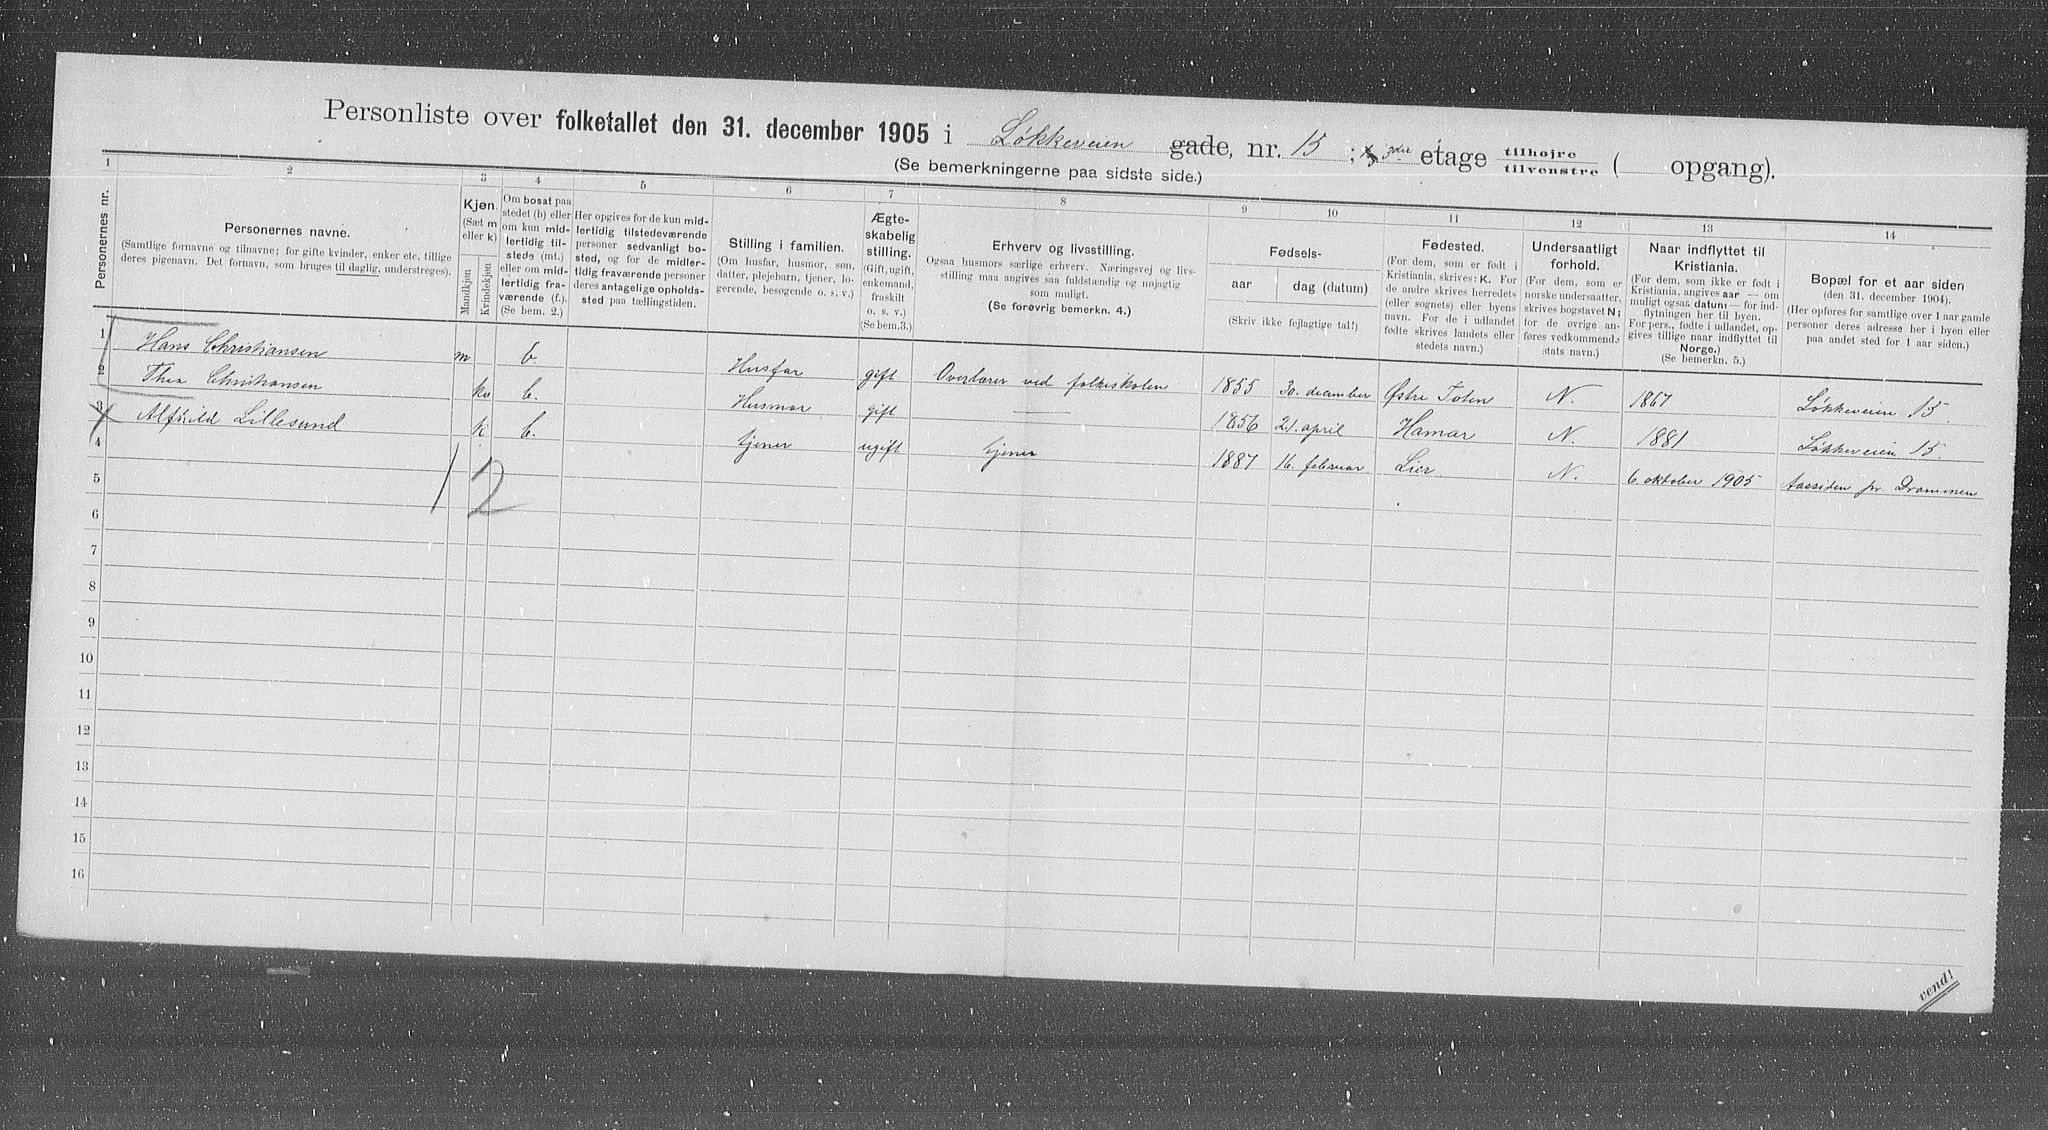 Personliste over folketallet den 31. december 1905 i Løkkeveien gade, nr. 15 ; 3die etage tilhøjre tilvenstre ( opgang).
(Se bemerkningerne paa sidste side.)
1 2 3 4 5 6 7 8 9 10 11 12 13 14
Personernes nr.
Personernes navne.
(Samtlige fornavne og tilnavne; for gifte kvinder, enker etc. tillige
deres pigenavn. Det fornavn, som bruges til daglig, understreges).
Kjøn.
(Sæt m
eller k)
Mandkjøn
Kvindekjøn
Om bosat paa
stedet (b) eller
om kun mid-
lertidig til-
stede (mt.)
eller om mid-
lertidig fra-
værende (f.).
(Se bem. 2.)
Her opgives for de kun mid-
lertidig tilstedeværende
personer sedvanligt bo-
sted, og for de midler-
tidig fraværende personer
deres antagelige opholds-
sted paa tællingstiden.
Stilling i familien.
(Om husfar, husmor, søn,
datter, plejebarn, tjener, lo-
gerende, besøgende o. s. v.)
Ægte-
skabelig
stilling.
(Gift, ugift,
enkemand,
fraskilt
o. s. v.)
(Se bem.3.)
Erhverv og livsstilling.
Ogsaa husmors særlige erhverv. Næringsvej og livs-
stilling maa angives saa fuldstændig og nøjagtig
som muligt.
(Se forøvrig bemerkn. 4.)
Fødsels-
aar dag (datum)
(Skriv ikke fejlagtige tal!)
Fødested.
(For dem, som er født i
Kristiania, skrives: K. For
de andre skrives herredets
(eller sognets) eller byens
navn. For de i udlandet
fødte skrives landets eller
stedets navn.)
Undersaatligt
forhold.
(For dem, som er
norske undersaatter,
skrives bogstavet N;
for de øvrige an-
føres vedkommende
stats navn.)
Naar indflyttet til
Kristiania.
(For dem, som ikke er født i
Kristiania, angives aar — om
muligt ogsaa datum — for ind-
flytningen her til byen.
For pers., fødte i udlandet, op-
gives tillige naar indflyttet til
Norge.)
(Se bemerkn. 5.)
Bopæl for et aar siden
(den 31. december 1904).
(Her opføres for samtlige over 1 aar gamle
personer deres adresse her i byen eller
paa andet sted for 1 aar siden.)
1 Hans Christiansen m b. Husfar gift Overlærer ved folkeskolen 1855 30. december Østre Toten N. 1867 Løkkeveien 15.
2 Thea Christiansen kv b. Husmor gift — 1856 21. april Hamar N. 1881 Løkkeveien 15.
3 Alfhild Lillesund k b. tjener ugift tjener 1887 16. februar Lier N. 6. oktober 1905 pr. Drammen
4
5
1 2
6
7
8
9
10
11
12
13
14
15
16
vend!